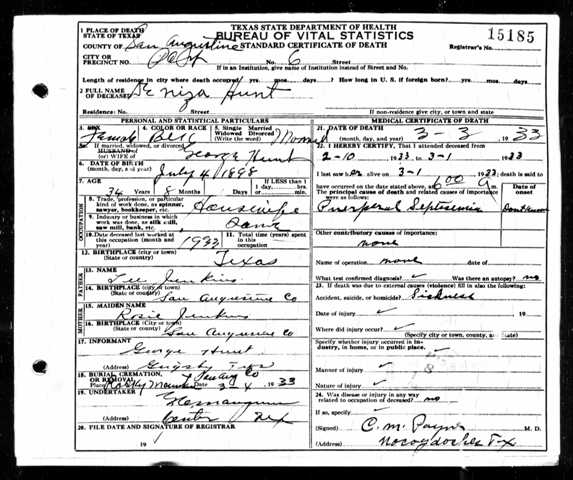 TEXAS STATE DEPARTMENT OF HEALTH
BUREAU OF VITAL STATISTICS
STANDARD CERTIFICATE OF DEATH
15185
Registrar's No.
1 PLACE OF DEATH
STATE OF TEXAS
COUNTY OF San Augustine
CITY OR
PRECINCT NO. No. 6 Street
If in an Institution, give name of institution instead of Street and No.
Length of residence in city where death occurred yrs. mos. days. How long in U. S. if foreign born? yrs. mos. days.
2 FULL NAME
OF DECEASED Hunt
Residence: No. Street
If non-residence give city, or town and state
PERSONAL AND STATISTICAL PARTICULARS
3. SEX Female
4. COLOR OR RACE Blk
5. Single Married Widowed Divorced (Write the word)
5a. If married, widowed, or divorced
HUSBAND of
(or) WIFE of George Hunt
6. DATE OF BIRTH
(month, day, and year) July 4 1898
7. AGE 34 Years 8 Months Days If less than 1 day, hrs. min.
OCCUPATION
8. Trade, profession, or particular kind of work done, as spinner, sawyer, bookkeeper, etc. Housewife
9. Industry or business in which work was done, as silk mill, saw mill, bank, etc.
10. Date deceased last worked at this occupation (month and year) 1933
11. Total time (years) spent in this occupation
12. BIRTHPLACE (city or town)
(State or country) Texas
FATHER
13. NAME Lee Jenkins
14. BIRTHPLACE (city or town)
(State or county) San Augustine Co
MOTHER
15. MAIDEN NAME Rosie Jenkins
16. BIRTHPLACE (City or town)
(State or country) San Augustine Co
17. INFORMANT George Hunt
(Address)
18. BURIAL, CREMATION, OR REMOVAL
Place Date 3-4 1933
19. UNDERTAKER
(Address) Center Tex
20. FILE DATE AND SIGNATURE OF REGISTRAR
19
MEDICAL CERTIFICATE OF DEATH
21. DATE OF DEATH
(month, day, and year) 3-3 1933
22. I HEREBY CERTIFY, That I attended deceased from
2-10 1933, to 3-1 1933
I last saw her alive on 3-1 1933 death is said to
have occurred on the date stated above, at 6:00 A m.
The principal cause of death and related causes of importance were as follows:
Date of Onset
Puerperal Septicemia Dont Know
Other contributory causes of importance:
none
Name of operation none date of
What test confirmed diagnosis? ✓ Was there an autopsy? no
23. If death was due to external causes (violence) fill in also the following:
Accident, suicide, or homicide? Sickness
Date of injury ✓ 19
Where did injury occur? ✓
(Specify city or town, county, and State)
Specify whether injury occurred in Industry, in home, or in public place. ✓
Manner of injury ✓
Nature of injury ✓
24. Was disease or injury in any way related to occupation of deceased? no
If so, specify ✓
(Signed) C. M. Payne M. D.
(Address) Nacogdoches Tx